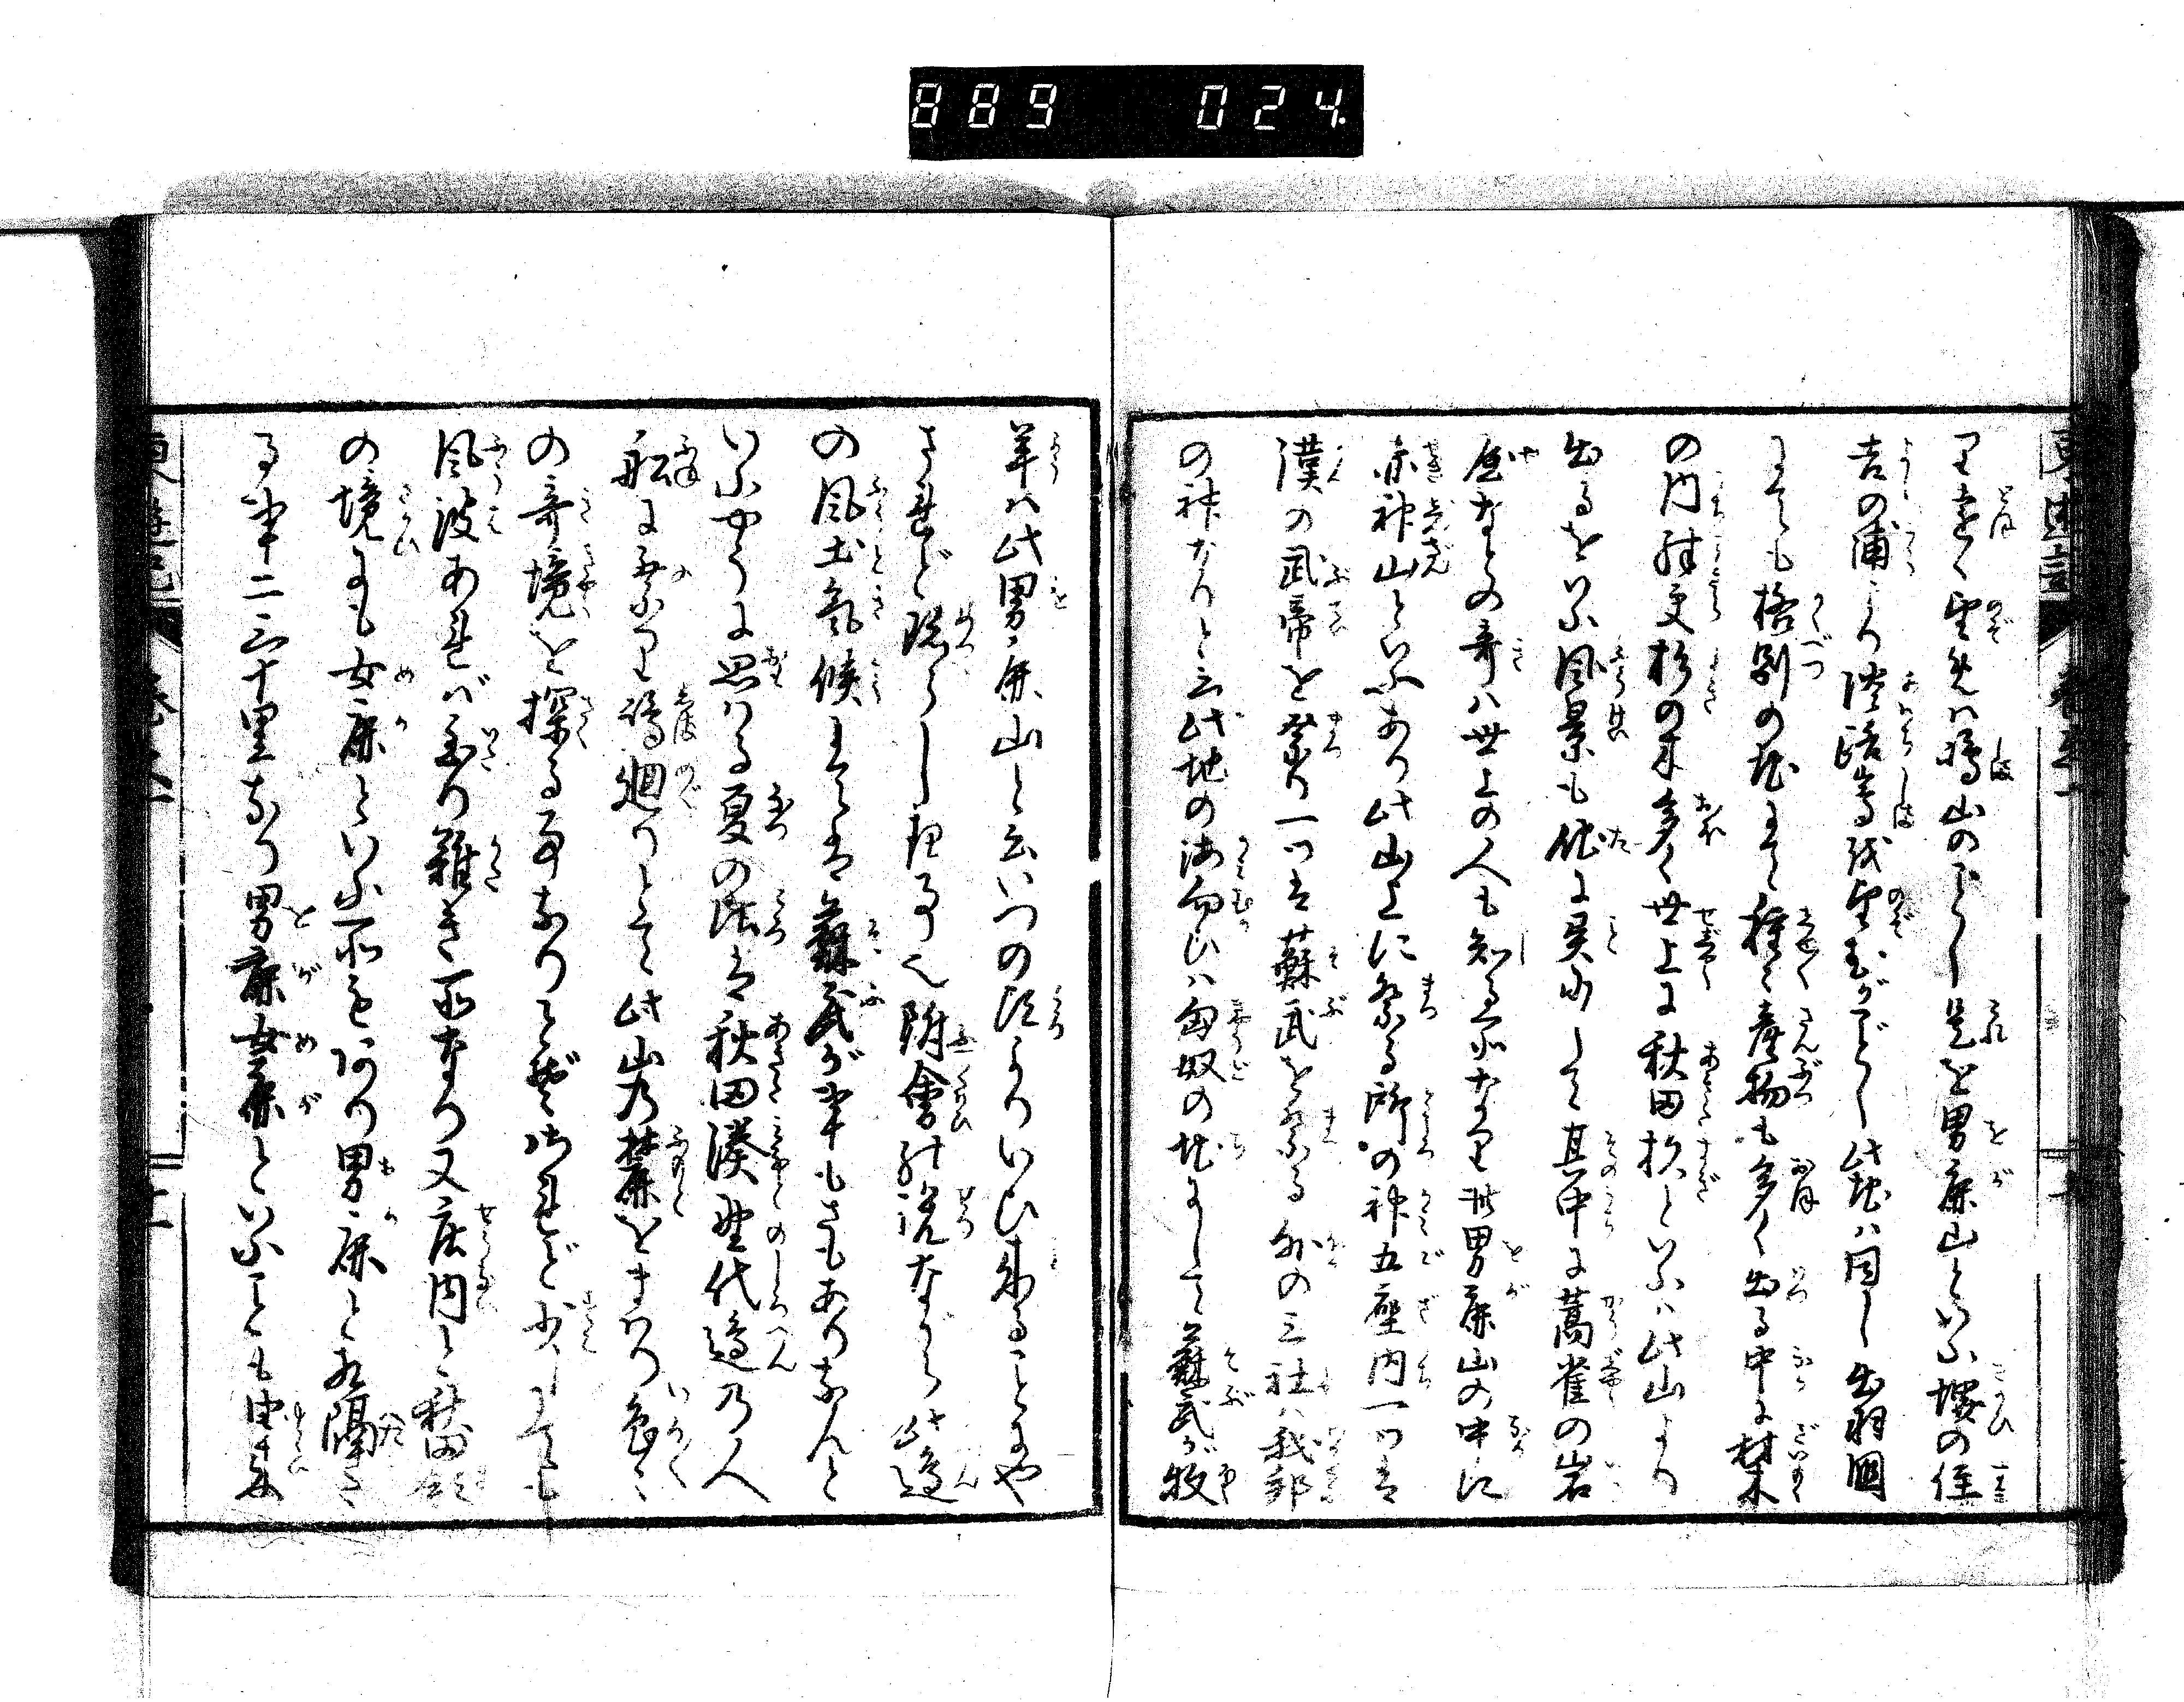 889 024
東遊記 巻之一
り遠く望めば嶋山のごとし是を男鹿山といふ堺の住
吉の浦より淡路嶋を望むがごとし此地は同じ出羽国
にても格別の地にて種々産物も多く出る中に材木
の内殊更杉の木多く世上に秋田杉といふは此山より
出るをいふ風景も他に異にして其中に蒿雀の岩
屋などの奇は世上の人も知る所なり此男鹿山の中に
赤神山といふあり此山上に祭る所の神五座内一ツは
漢の武帝を祭り一ツは蘇武を祭る外の三社は我邦
の神なりと云此地の海向ひは匈奴の地にして蘇武が牧
羊は此男鹿山と云いつの頃よりいひ来ることにや
され共珍らしき事也附會の説ながら此邊
の風土気候にては蘇武が事もさもありなんと
いふやうに思はる夏の頃は秋田湊野代邊の人
船に乗り嶋廻りとて此山の麓をまはり色々
の奇境を探る事なりとぞされど少しにても
風波あれば至り難き所なり又庄内と秋田領
の境にも女鹿といふ所もあり男鹿と相隔たる
る事二三十里あり男鹿女鹿といふことも由来
東遊記 巻之一